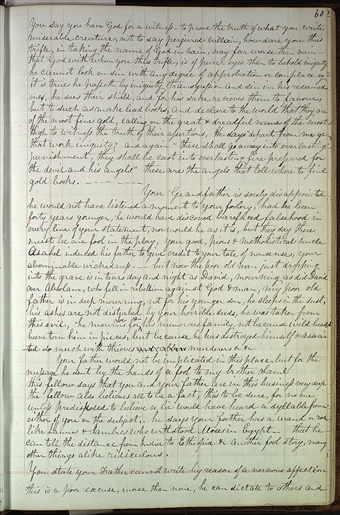 602
You say you have God for a witness to prove the truth of what you write
miserable creature, not to say perjured villain, how dare you thus
trifle, in taking the name of God in vain, may far worse than vain
that God with whom you thus trifle, is of purer eyes than to behold iniquity
he cannot look on sin with any degree of approbation or complacency
it is true he
ones, he sees their shield, and for his sake receives them to favour;
but to such as make lead
of the most fine gold, calling on the great & dreadful name of the most
high to witness the truth of their assertions, He says depart from me ye
that work iniquity; and again "these shall go away into everlasting
punishment, they shall be cast into everlasting fire prepared for
the devil and his angels" these are the angels that tell where to find
gold &c.
Your Grandfather is sorely disappointed
he would not have listened a moment to your foolery, had he been
forty years younger, he would have discovered barefaced falsehood in
every line of your statement, nor would he as it is, but they say there
must be one fool in the play, your good, pious & methodistical uncle
Asahel induced his father to give credit to your tale of nonsense, your
abominable wickedness but now the poor old man just stepping
into the grave is in tears day and night as David, mourning as did David
over Absolom, who fell in rebellion against God & man, my poor old
father is in deep mourning, not for his younger son, he sleeps in the dust,
his ashes are not disturbed by your horrible deeds, he was taken from
this evil, he mourns for his numerous family, not because wild beasts
have torn him in pieces, but because he has destroyed himself & associa-
ted so much with thieves and murderers &c
Your father would not be implicated in this place, but for the
message he sent by the hands of a fool to my brother
this fellow says that you and your father are in this business very deep
the fellow also believes all to be a fact, this to be sure, for no one
unless predisposed to believe a lie would have heard a syllable from
either of you on the subject, he says your father has a wand or rod
like Jannes & Jambres who withstood Moses in Egypt that he
can tell the distance from India to Ethiopia & another fool story, many
other things alike ridiculous.
You state your Father cannot write by reason of a nervous affection
this is a poor excuse, worse than none, he can dictate to others and